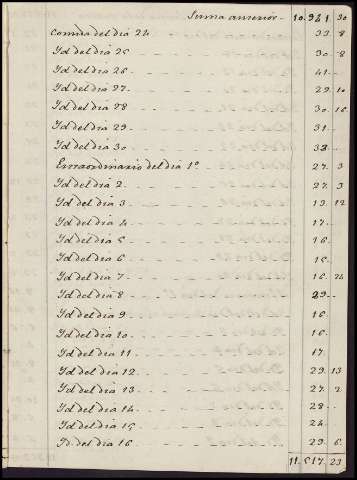 Suma anterior - 10.941. 30
Comida del dia 24 33. 8
Yd del dia 25 30. 8
Yd del dia 26 41.
Yd del dia 27 29. 10
Yd del dia 28 30. 16
Yd del dia 29 31.
Yd del dia 30 32
Extraordinario del dia 1º 27. 3
Yd del dia 2 27. 3
Yd del dia 3 19. 12
Yd del dia 4 17.
Yd del dia 5 16.
Yd del dia 6 15.
Yd del dia 7 16. 24
Yd del dia 8 29
Yd del dia 9 16.
Yd del dia 10 16.
Yd del dia 11 17.
Yd del dia 12 29. 13
Yd del dia 13 27. 2
Yd del dia 14 28
Yd del dia 15 24.
Yd. del dia 16 29. 6.
11.517. 23